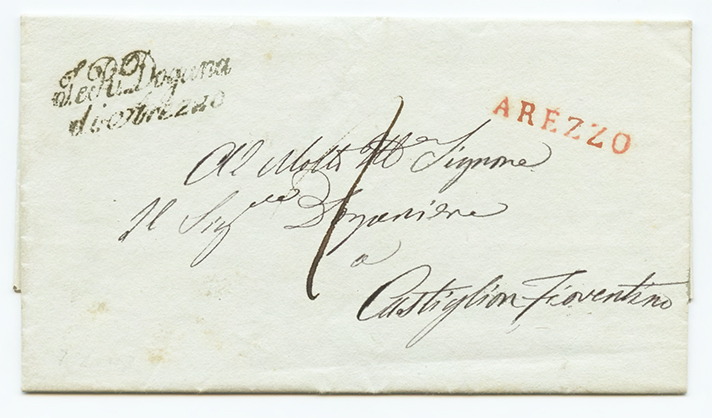 I. e R. Dogana
di Arezzo
AREZZO
Al Molto Ill.e Signore
Il Sig.re Doganiere
a
Castiglion Fiorentino